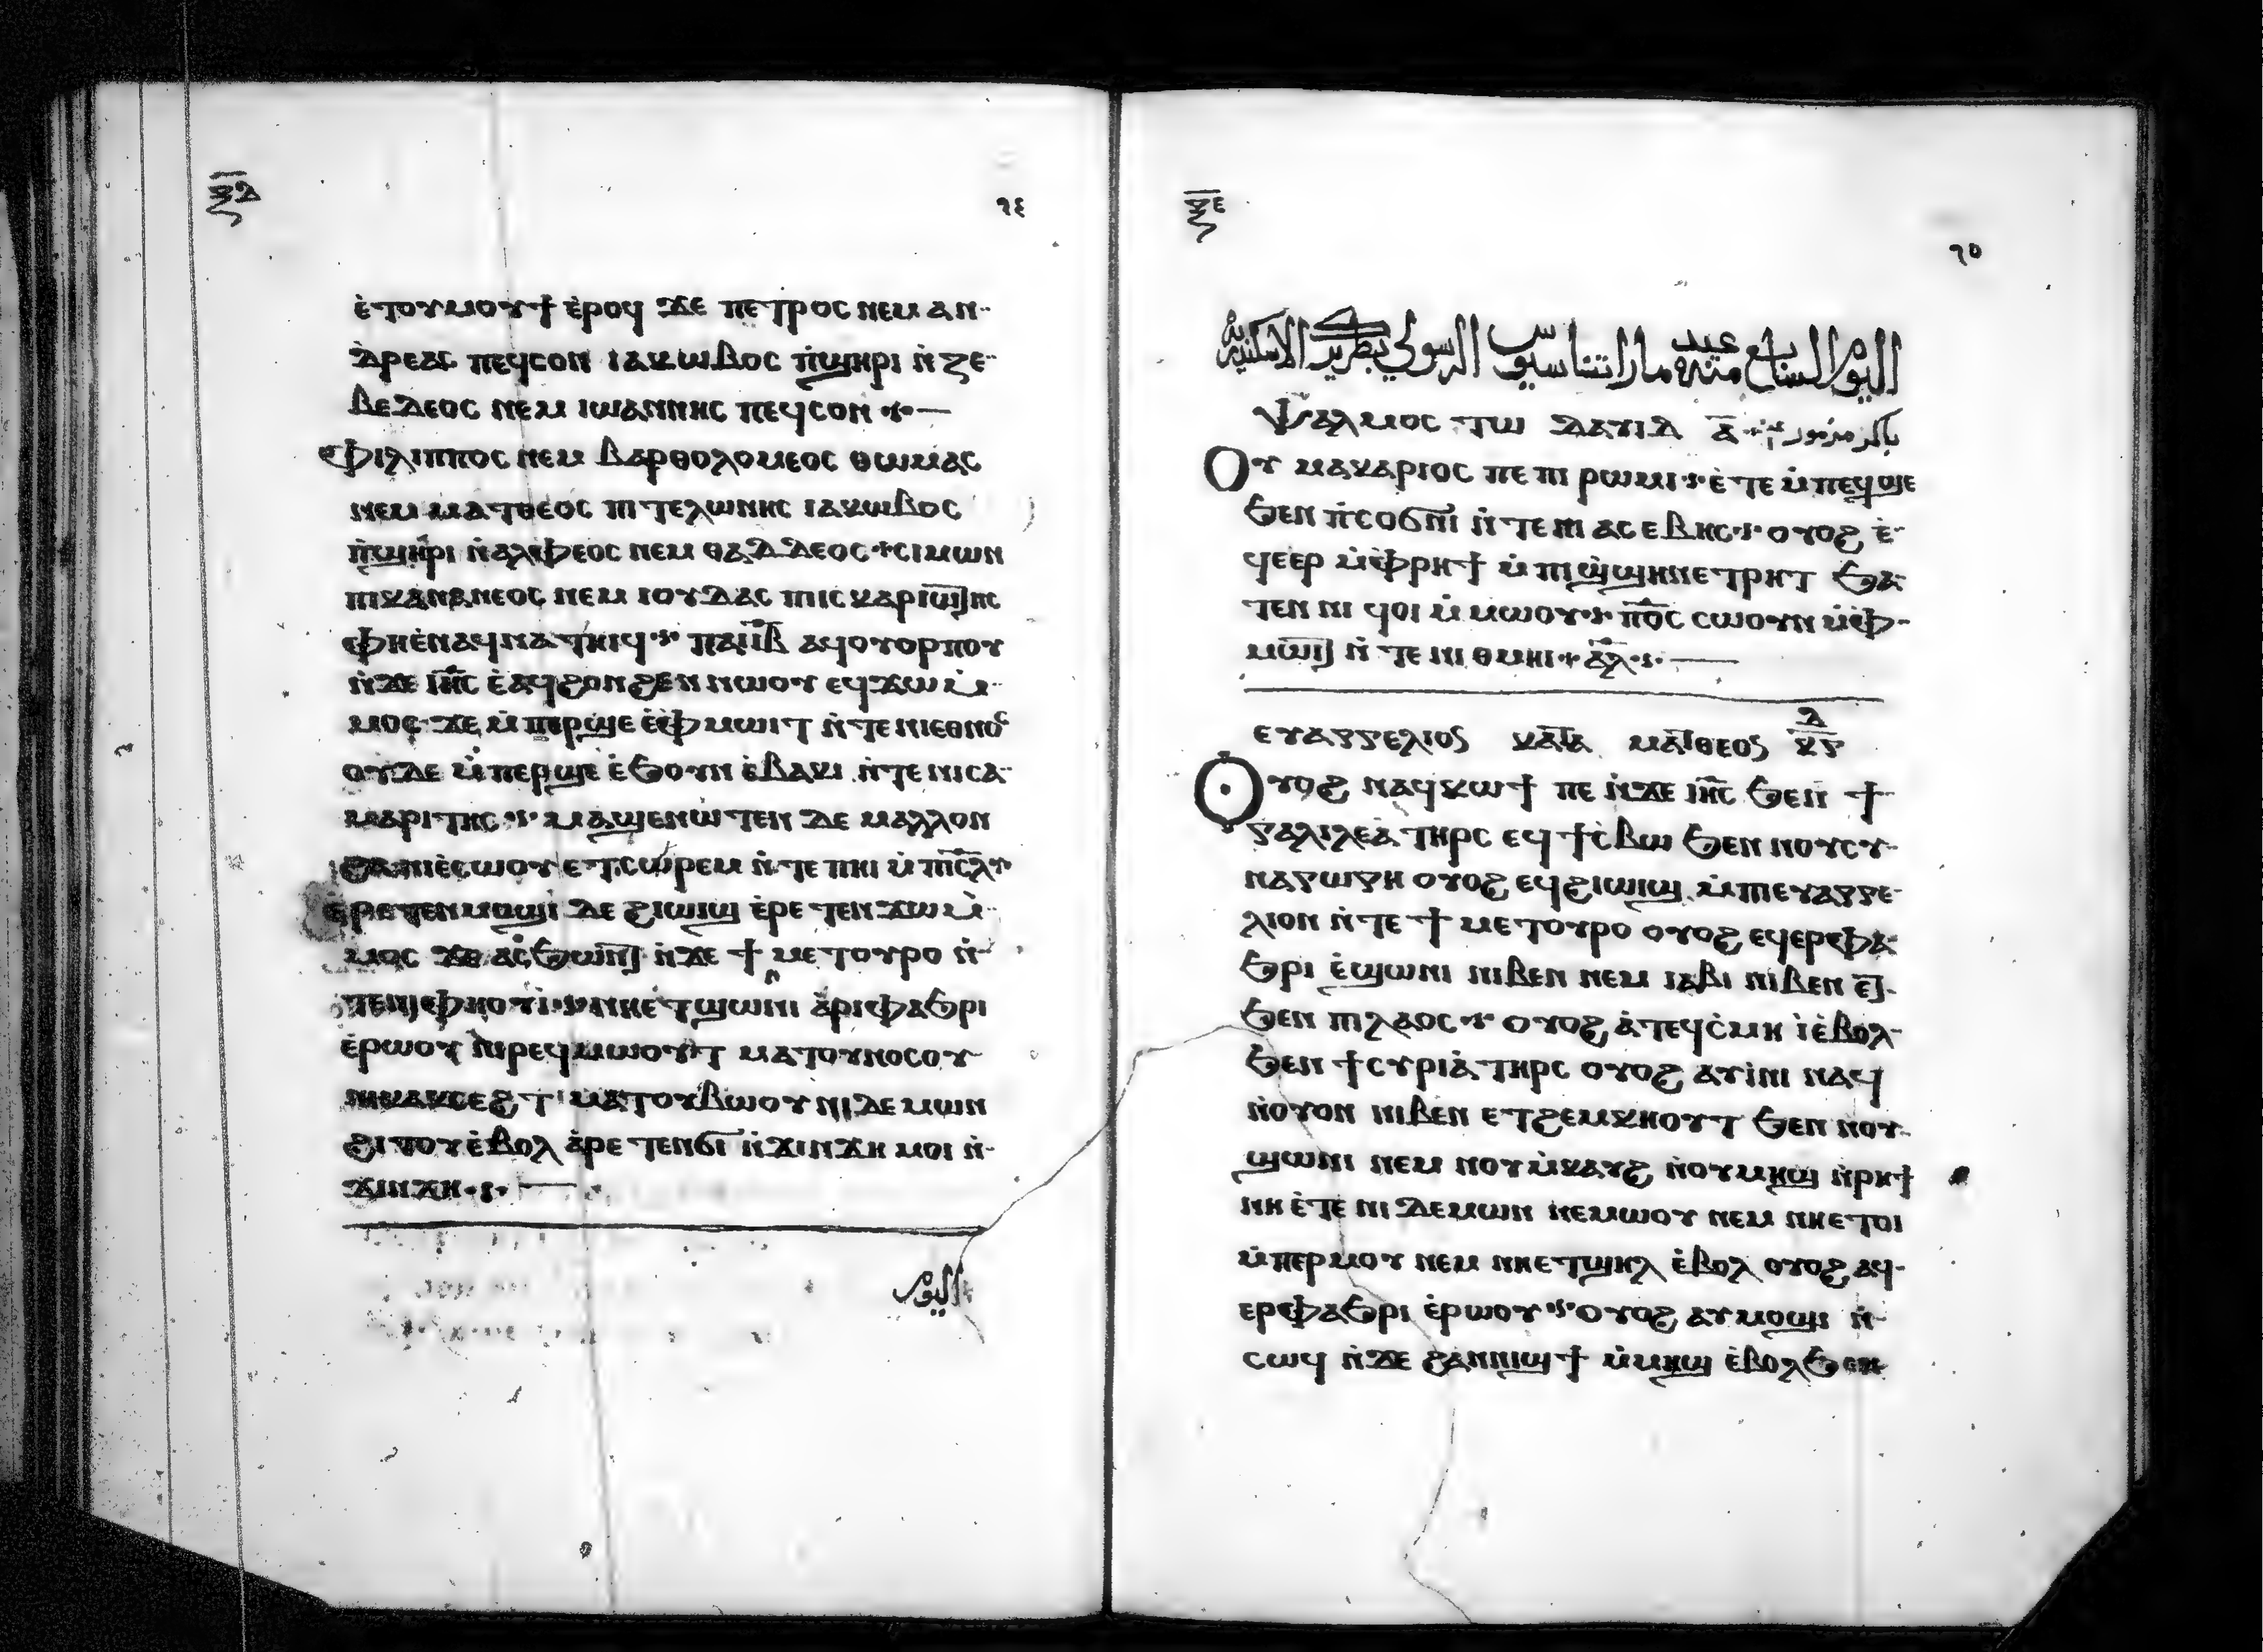 ⲝ̅ⲇ̅ ٦٤
ⲉ̀ⲧⲟⲩⲙⲟⲩϯ ⲉ̀ⲣⲟϥ ϫⲉ ⲡⲉⲧⲣⲟⲥ ⲛⲉⲙ ⲁⲛ-
ⲇⲣⲉⲁⲥ ⲡⲉϥⲥⲟⲛ ⲓⲁⲕⲱⲃⲟⲥ ⲡ̀ϣⲏⲣⲓ ⲛ̀ⲍⲉ-
ⲃⲉⲇⲉⲟⲥ ⲛⲉⲙ ⲓⲱⲁⲛⲛⲏⲥ ⲡⲉϥⲥⲟⲛ
ⲫⲓⲗⲓⲡⲡⲟⲥ ⲛⲉⲙ ⲃⲁⲣⲑⲟⲗⲟⲙⲉⲟⲥ ⲑⲱⲙⲁⲥ
ⲛⲉⲙ ⲙⲁⲧⲑⲉⲟⲥ ⲡⲓⲧⲉⲗⲱⲛⲏⲥ ⲓⲁⲕⲱⲃⲟⲥ
ⲡ̀ϣⲏⲣⲓ ⲛ̀ⲁⲗⲫⲉⲟⲥ ⲛⲉⲙ ⲑⲁⲇⲇⲉⲟⲥ ⲥⲓⲙⲱⲛ
ⲡⲓⲕⲁⲛⲁⲛⲉⲟⲥ ⲛⲉⲙ ⲓⲟⲩⲇⲁⲥ ⲡⲓⲥⲕⲁⲣⲓⲱⲧⲏⲥ
ⲫⲏⲉ̀ⲛⲁϥⲛⲁⲧⲏⲓϥ ⲡⲁⲓⲓ̅ⲃ̅ ⲁϥⲟⲩⲟⲣⲡⲟⲩ
ⲛ̀ϫⲉ ⲓⲏ̅ⲥ̅ ⲉ̀ⲁϥϩⲟⲛϩⲉⲛ ⲛⲱⲟⲩ ⲉϥϫⲱ ⲙ̀-
ⲙⲟⲥ ϫⲉ ⲙ̀ⲡⲉⲣϣⲉ ⲉ̀ⲫⲙⲱⲓⲧ ⲛ̀ⲧⲉ ⲛⲓⲉⲑⲛⲟⲥ
ⲟⲩⲇⲉ ⲙ̀ⲡⲉⲣϣⲉ ⲉ̀ϧⲟⲩⲛ ⲉ̀ⲃⲁⲕⲓ ⲛ̀ⲧⲉ ⲛⲓⲥⲁ-
ⲙⲁⲣⲓⲧⲏⲥ ⲙⲁϣⲉⲛⲱⲧⲉⲛ ⲇⲉ ⲙⲁⲗⲗⲟⲛ
ϩⲁ ⲛⲓⲉ̀ⲥⲱⲟⲩ ⲉⲧⲥⲱⲣⲉⲙ ⲛ̀ⲧⲉ ⲡⲏⲓ ⲙ̀ⲡⲓⲥ̅ⲗ̅
ⲉ̀ⲣⲉⲧⲉⲛⲙⲟϣⲓ ⲇⲉ ϩⲓⲱⲓϣ ⲉ̀ⲣⲉⲧⲉⲛϫⲱ ⲙ̀-
ⲙⲟⲥ ϫⲉ ⲁⲥϧⲱⲛⲧ ⲛ̀ϫⲉ ϯⲙⲉⲧⲟⲩⲣⲟ ⲛ̀-
ⲧⲉⲛⲓⲫⲏⲟⲩⲓ̀ ⲛⲏⲉⲧϣⲱⲛⲓ ⲁ̀ⲣⲓⲫⲁϧⲣⲓ
ⲉ̀ⲣⲱⲟⲩ ⲛⲓⲣⲉϥⲙⲱⲟⲩⲧ ⲙⲁⲧⲟⲩⲛⲟⲥⲟⲩ
ⲛⲓⲕⲁⲕⲥⲉϩⲧ ⲙⲁⲧⲟⲩⲃⲱⲟⲩ ⲛⲓⲇⲉⲙⲱⲛ
ϩⲓⲧⲟⲩ ⲉ̀ⲃⲟⲗ ⲁ̀ⲣⲉⲧⲉⲛϭⲓ ⲛ̀ϫⲓⲛϫⲏ ⲙⲟⲓ ⲛ̀-
ϫⲓⲛϫⲏ
اليوم
ⲝ̅ⲉ̅ ٦٥
اليوم السابع منه عيد مار اتناسيوس الرسولي بطريرك الاسكندريه
Ⲯⲁⲗⲙⲟⲥ ⲧⲱ ⲇⲁⲩⲓⲇ ⲁ̅ باكر مزمور
Ⲟⲩⲙⲁⲕⲁⲣⲓⲟⲥ ⲡⲉ ⲡⲓⲣⲱⲙⲓ ⲉ̀ⲧⲉ ⲙ̀ⲡⲉϥϣⲉ
ϧⲉⲛ ⲡ̀ⲥⲟϭⲛⲓ ⲛ̀ⲧⲉ ⲛⲓⲁⲥⲉⲃⲏⲥ ⲟⲩⲟϩ ⲉ̀-
ϥⲉⲉⲣ ⲙ̀ⲫⲣⲏϯ ⲙ̀ⲡⲓϣ̀ϣⲏⲛ ⲉⲧⲣⲏⲧ ϧⲁ-
ⲧⲉⲛ ⲛⲓϥⲟⲓ ⲙ̀ⲙⲱⲟⲩ ⲡ̅ⲟ̅ⲥ̅ ⲥⲱⲟⲩⲛ ⲙ̀ⲫ-
ⲙⲱⲓⲧ ⲛ̀ⲧⲉ ⲛⲓⲑⲙⲏⲓ ⲁ̅ⲗ̅
ⲉⲩⲁⲅⲅⲉⲗⲓⲟⲥ ⲕⲁⲧⲁ ⲙⲁⲧⲑⲉⲟⲥ ⲇ̅ ⲕ̅ⲅ̅
Ⲟⲩⲟϩ ⲛⲁϥⲕⲱϯ ⲡⲉ ⲛ̀ϫⲉ ⲓⲏ̅ⲥ̅ ϧⲉⲛ ϯ-
ⲅⲁⲗⲓⲗⲉⲁ̀ ⲧⲏⲣⲥ ⲉϥϯⲥ̀ⲃⲱ ϧⲉⲛ ⲛⲟⲩⲥⲩ-
ⲛⲁⲅⲱⲅⲏ ⲟⲩⲟϩ ⲉϥϩⲓⲱⲓϣ ⲙ̀ⲡⲓⲉⲩⲁⲅⲅⲉ-
ⲗⲓⲟⲛ ⲛ̀ⲧⲉ ϯⲙⲉⲧⲟⲩⲣⲟ ⲟⲩⲟϩ ⲉϥⲉⲣⲫⲁ-
ϧⲣⲓ ⲉ̀ϣⲱⲛⲓ ⲛⲓⲃⲉⲛ ⲛⲉⲙ ⲓⲁⲃⲓ ⲛⲓⲃⲉⲛ ⲉⲧ-
ϧⲉⲛ ⲡⲓⲗⲁⲟⲥ ⲟⲩⲟϩ ⲁ̀ⲧⲉϥⲥ̀ⲙⲏ ⲓ̀ ⲉ̀ⲃⲟⲗ-
ϧⲉⲛ ϯⲥⲩⲣⲓⲁ̀ ⲧⲏⲣⲥ ⲟⲩⲟϩ ⲁⲩⲓ̀ⲛⲓ ⲛⲁϥ
ⲛ̀ⲟⲩⲟⲛ ⲛⲓⲃⲉⲛ ⲉⲧϩⲉⲙⲕⲏⲟⲩⲧ ϧⲉⲛ ⲛⲟⲩ-
ϣⲱⲛⲓ ⲛⲉⲙ ⲛⲟⲩⲙ̀ⲕⲁⲩϩ ⲛ̀ⲟⲩⲙⲏϣ ⲛ̀ⲣⲏϯ
ⲛⲏⲉ̀ⲧⲉ ⲛⲓⲇⲉⲙⲱⲛ ⲛⲉⲙⲱⲟⲩ ⲛⲉⲙ ⲛⲏⲉⲧⲟⲓ
ⲙ̀ⲡⲉⲣⲙⲟⲩ ⲛⲉⲙ ⲛⲏⲉⲧϣⲏⲗ ⲉ̀ⲃⲟⲗ ⲟⲩⲟϩ ⲁϥ-
ⲉⲣⲫⲁϧⲣⲓ ⲉ̀ⲣⲱⲟⲩ ⲟⲩⲟϩ ⲁⲩⲙⲟϣⲓ ⲛ̀-
ⲥⲱϥ ⲛ̀ϫⲉ ϩⲁⲛⲛⲓϣϯ ⲙ̀ⲙⲏϣ ⲉ̀ⲃⲟⲗϧⲉⲛ